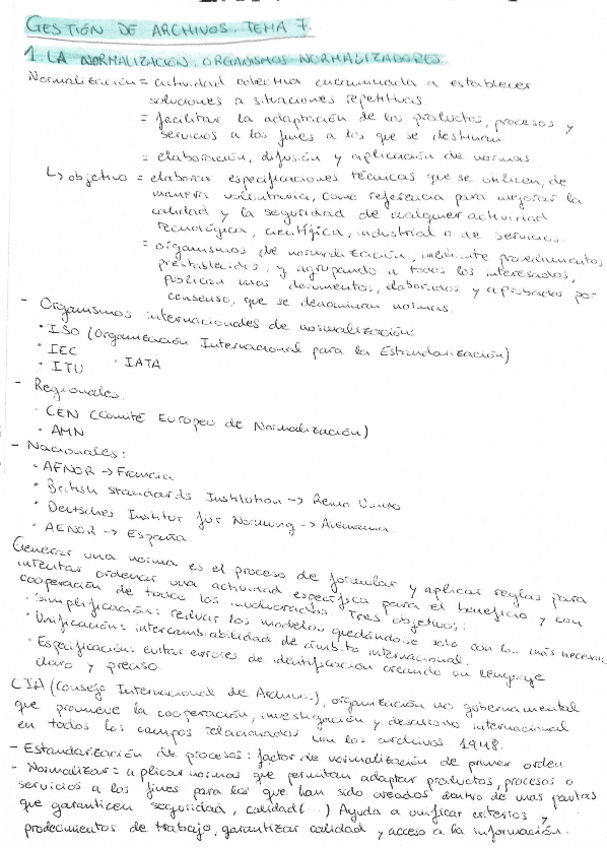 GESTIÓN DE ARCHIVOS. TEMA 7.
1. LA NORMALIZACIÓN, ORGANISMOS NORMALIZADORES.
Normalización = actividad colectiva encaminada a establecer
soluciones a situaciones repetitivas
= facilitar la adaptación de los productos, procesos y
servicios a los fines a los que se destinan
= elaboración, difusión y aplicación de normas
↳ objetivo = elaborar especificaciones técnicas que se utilicen, de
manera voluntaria, como referencia para mejorar la
calidad y la seguridad de cualquier actividad
tecnológica, científica, industrial o de servicios.
= organismos de normalización, mediante procedimientos
prestablecidos, y agrupando a todos los interesados,
publican unos documentos, elaborados y aprobados por
consenso, que se denominan normas.
- Organismos internacionales de normalización:
· ISO (Organización Internacional para la Estandarización)
· IEC
· ITU · IATA
- Regionales.
· CEN (Comité Europeo de Normalización)
· AMN
- Nacionales:
· AFNOR → Francia
· British Standards Institution → Reino Unido
· Deutsches Institut für Normung → Alemania
· AENOR → España
Generar una norma es el proceso de formular y aplicar reglas para
intentar ordenar una actividad específica para el beneficio y con
cooperación de todos los involucrados. Tres objetivos:
· Simplificación: reducir los modelos quedándose solo con los más necesar
· Unificación: intercambiabilidad de ámbito internacional.
· Especificación: evitar errores de identificación creando un lenguaje
claro y preciso
CIA (Consejo Internacional de Archivos), organización no gubernamental
que promueve la cooperación, investigación y desarrollo internacional
en todos los campos relacionados con los archivos 1948.
- Estandarización de procesos: factor de normalización de primer orden
- Normalizar = aplicar normas que permitan adaptar productos, procesos o
servicios a los fines para los que han sido creados dentro de unas pautas
que garanticen seguridad, calidad (...) Ayuda a unificar criterios y
prodecimientos de trabajo, garantizar calidad y acceso a la información.